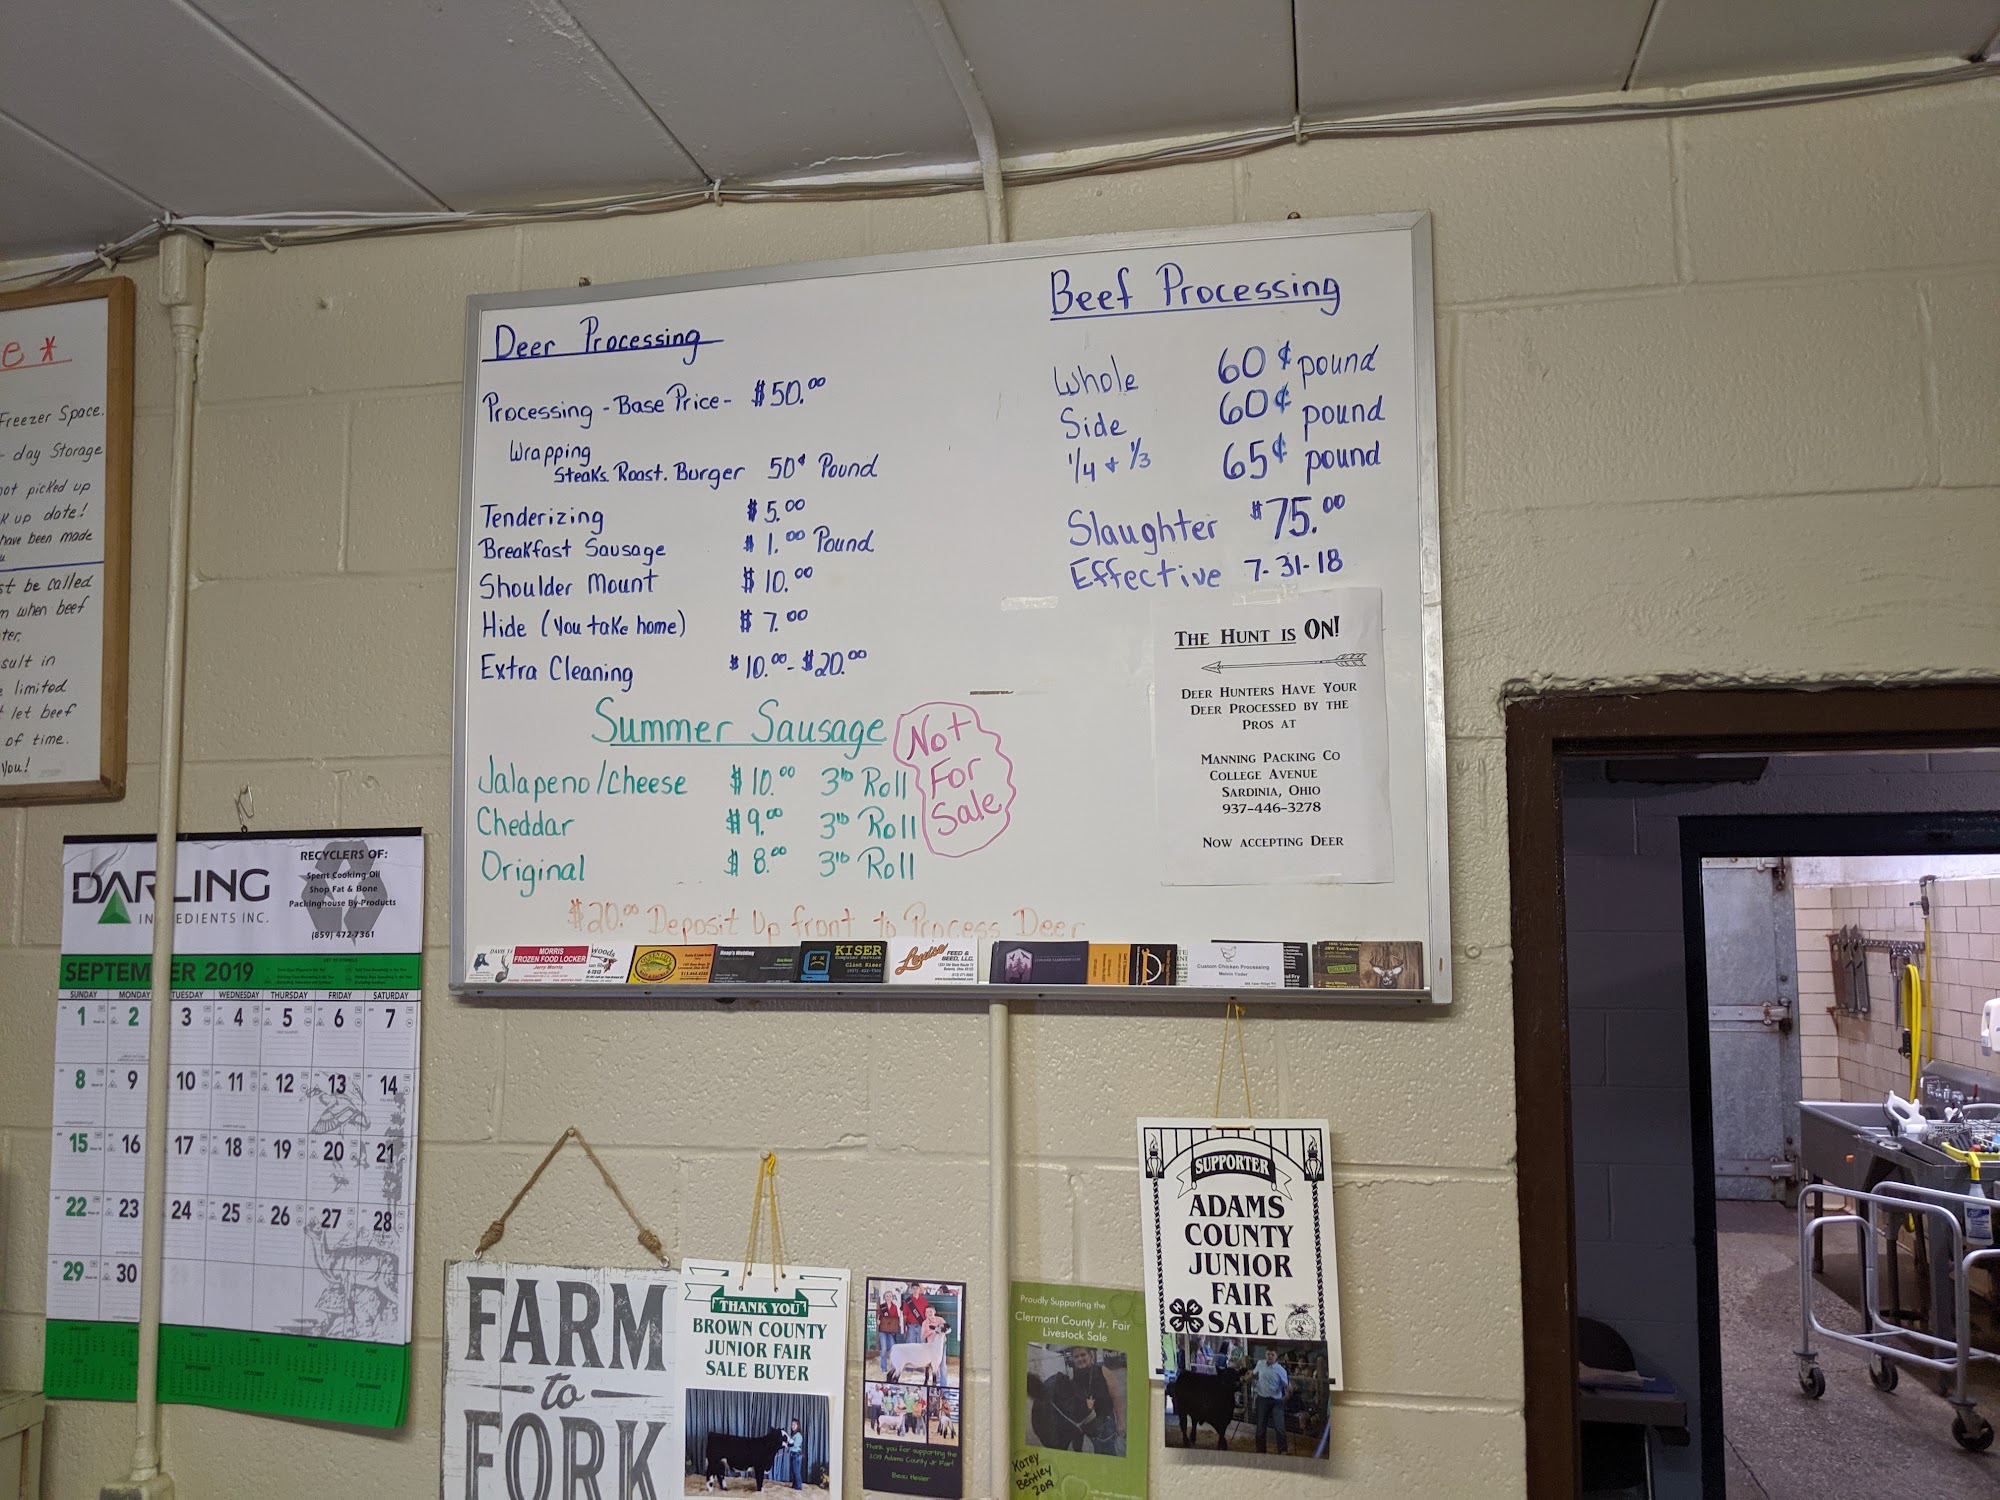 e *
Freezer Space.
- day Storage
not picked up
k up date!
have been made
st be called
m when beef
ter.
sult in
e limited
t let beef
of time.
You!
Deer Processing
Processing - Base Price - $50.00
Wrapping
Steaks. Roast. Burger 50¢ Pound
Tenderizing $5.00
Breakfast Sausage $1.00 Pound
Shoulder Mount $10.00
Hide (You take home) $7.00
Extra Cleaning $10.00 - $20.00
Summer Sausage
Jalapeno/Cheese $10.00 3lb Roll
Cheddar $9.00 3lb Roll
Original $8.00 3lb Roll
Not
For
Sale
$20.00 Deposit Up front to Process Deer
Beef Processing
Whole 60¢ pound
Side 60¢ pound
1/4 + 1/3 65¢ pound
Slaughter $75.00
Effective 7-31-18
THE HUNT IS ON!
DEER HUNTERS HAVE YOUR
DEER PROCESSED BY THE
PROS AT
MANNING PACKING CO
COLLEGE AVENUE
SARDINIA, OHIO
937-446-3278
NOW ACCEPTING DEER
MORRIS
FROZEN FOOD LOCKER
Jerry Morris
KISER
Computer Service
Clint Kiser
Louiso
FEED &
SEED, LLC.
Custom Chicken Processing
DARLING
INGREDIENTS INC.
RECYCLERS OF:
Spent Cooking Oil
Shop Fat & Bone
Packinghouse By-Products
(859) 472-7361
SEPTEMBER 2019
SUNDAY MONDAY TUESDAY WEDNESDAY THURSDAY FRIDAY SATURDAY
1 2 3 4 5 6 7
8 9 10 11 12 13 14
15 16 17 18 19 20 21
22 23 24 25 26 27 28
29 30
FARM
to
FORK
THANK YOU
BROWN COUNTY
JUNIOR FAIR
SALE BUYER
Thank you for supporting the
2019 Adams County Jr Fair!
Beau Hesler
Proudly Supporting the
Clermont County Jr. Fair
Livestock Sale
Karey
+
Bentley
2019
SUPPORTER
ADAMS
COUNTY
JUNIOR
FAIR
SALE